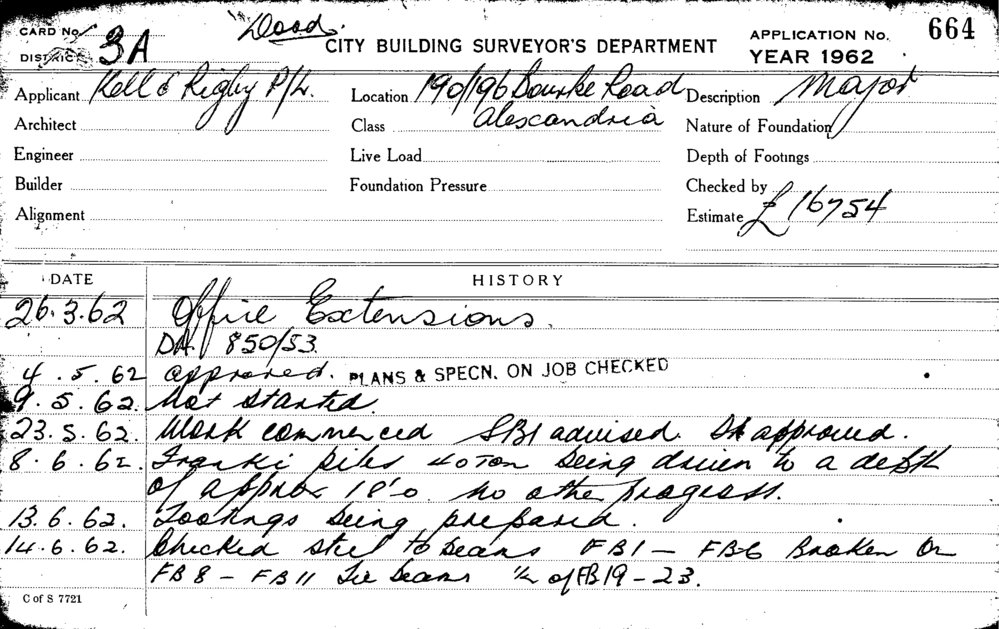 Dood.
CARD No. 3A
DISTRICT
CITY BUILDING SURVEYOR'S DEPARTMENT
APPLICATION No. 664
YEAR 1962
Applicant Kell & Rigby P/L.
Location 190/196 Bourke Road
Alexandria
Description Major
Architect
Class
Nature of Foundation
Engineer
Live Load
Depth of Footings
Builder
Foundation Pressure
Checked by
Alignment
Estimate £16754
DATE HISTORY
26.3.62 Office Extensions.
DA. 850/53
4.5.62 approved. PLANS & SPECN. ON JOB CHECKED
9.5.62. Not started.
23.5.62. Work commenced SBI advised. approved.
8.6.62. Franki piles 40 TON being driven to a depth
of approx 18'0 no other progress.
13.6.62. Footings being prepared.
14.6.62. Checked steel to beams FB1 - FB6 Broken On
FB8 - FB11 Tie beams ½ of FB19 - 23.
C of S 7721